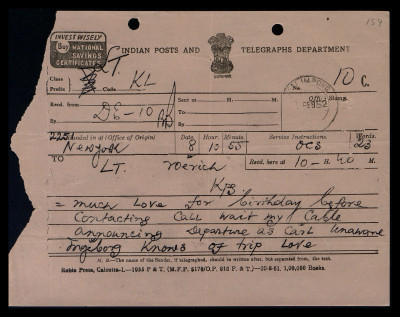 159
INVEST WISELY
Buy NATIONAL
SAVINGS
CERTIFICATES
INDIAN POSTS AND TELEGRAPHS DEPARTMENT
LT.
Class
Prefix Code KL No. 10 C.
Recd. from DE-10 Sent at H. M. Office Stamp.
To
By
2251 Handed in at (Office of Origin) Date Hour Minute Service Instructions Words
Newyork 8 10 55 OCS 23
TO LT. roerich Recd. here at 10-H. 40 M.
KPG
= much Love for birthday before
Contacting Call wait my Cable
announcing Departure as Cast Unaware
Ingeborg Knows of trip Love
N. B.—The name of the Sender, if telegraphed, should be written after, not separated from, the text.